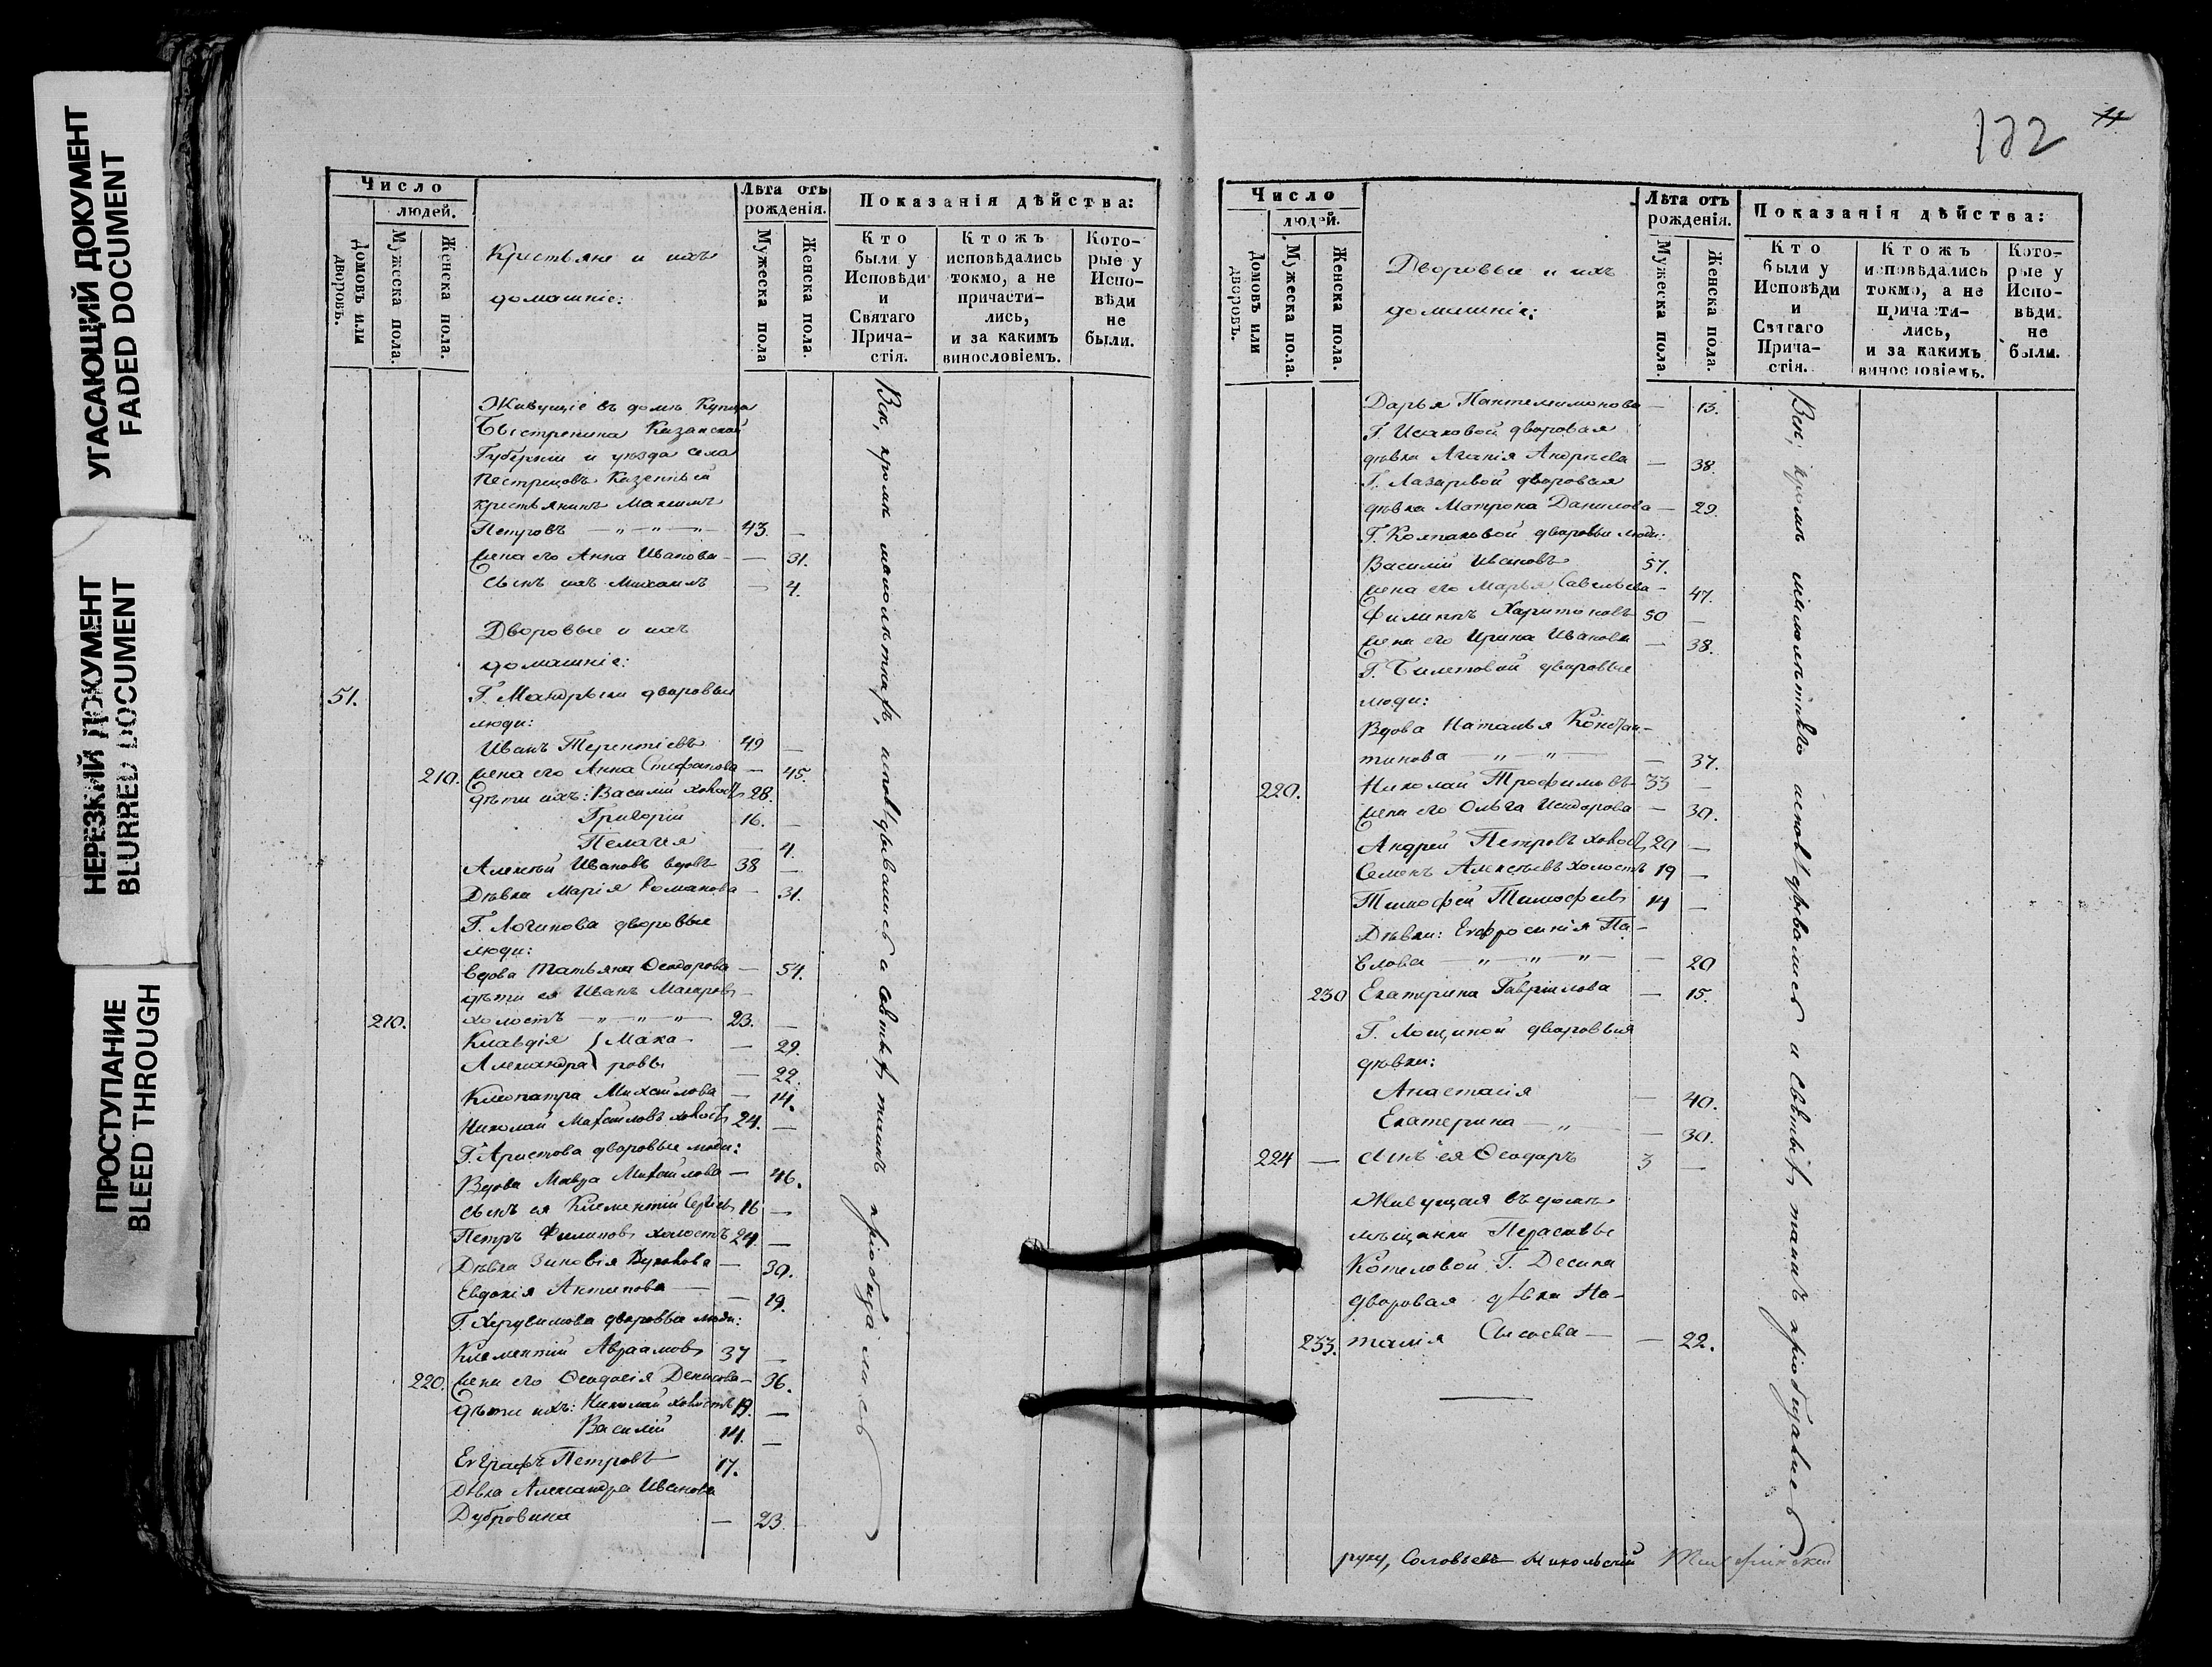 УГАСАЮЩИЙ ДОКУМЕНТ
FADED DOCUMENT
НЕРЕЗКИЙ ДОКУМЕНТ
BLURRED DOCUMENT
ПРОСТУПАНИЕ
BLEED THROUGH
Число
людей.
Домовъ или дворовъ.
Мужеска пола.
Женска пола.
Крестьяне и ихъ
домашніе:
Лѣта отъ
рожденія.
Мужеска пола
Женска пола.
Показанія дѣйства:
Кто
были у
Исповѣди
и
Святаго
Прича-
стія.
Ктожъ
исповѣдались
токмо, а не
причасти-
лись,
и за какимъ
винословіемъ.
Кото-
рые у
Испо-
вѣди
не
были.
Живущіе въ домѣ Купца
Быстренина Казанской
Губерніи и уѣзда села
Пестрецовъ Казенный
крестьянинъ Максимъ
Петровъ — " — " — 43. —
жена его Анна Иванова — — 31.
Сынъ ихъ Михаилъ — 4.
Дворовые и ихъ
домашніе:
51. Г. дворовые
люди:
Иванъ Терентіевъ 49 —
210. жена его Анна Стефанова — 45.
дѣти ихъ: Василій холостъ 28.
Григорій 16. —
Пелагея 4.
Алексѣй Ивановъ вдовъ 38 —
Дѣвка Марія Романова — 31.
Г. Логинова дворовые
люди:
вдова Татьяна Ѳеодорова — 54.
дѣти ея Иванъ Макаровъ
210. холостъ — " — " — " — 23. —
Клавдія } Мака- — 29.
Александра } ровы — 22.
Клеопатра Михайлова — 14.
Николай Михайловъ холостъ 24. —
Г. Аристова дворовые люди:
Вдова Мавра Михайлова — 46.
сынъ ея Климентій 16 —
Петръ Филиповъ холостъ 24. —
Дѣвка Зиновія — 30.
Евдокія Антипова — — 19.
Г. Херувимова дворовые люди:
Климентій Авраамовъ 37 —
220. жена его Ѳеодосія Денисова — 36.
дѣти ихъ: Николай холостъ 19. —
Василій 14. —
Евграфъ Петровъ 17.
Дѣвка Александра Иванова
Дубровина — 23.
Всѣ, кромѣ малолѣтнихъ, исповѣдывались и Святыхъ таинъ пріобщались
132 11
Число
людей.
Домовъ или дворовъ.
Мужеска пола.
Женска пола.
Дворовые и ихъ
домашніе:
Лѣта отъ
рожденія.
Мужеска пола.
Женска пола.
Показанія дѣйства:
Кто
были у
Исповѣди
и
Святаго
Прича-
стія.
Ктожъ
исповѣдались
токмо, а не
причасти-
лись,
и за какимъ
винословіемъ.
Кото-
рые у
Испо-
вѣди
не
были.
Дарья Пантелимонова — 13.
Г. Исаковой дворовая
дѣвка Агапія Андреева — 38.
Г. Лазаревой дворовая
дѣвка Матрона Данилова — 29.
Г. Колпаковой дворовые люди:
Василій Ивановъ 57.
жена его Марья Савельева — 47.
Филиппъ Харитоновъ 50 —
жена его Ирина Иванова — 38.
Г. дворовые
люди:
Вдова Наталья Констан-
тинова — " — " — — 37.
220. Николай Трофимовъ 33 —
жена его Ольга Исидорова — 30.
Андрей Петровъ холостъ 20 —
Семенъ Алексѣевъ холостъ 19 —
Тимофей Тимофеевъ 14 —
Дѣвки: Евфросинія Па-
влова — " — " — " — — 20
230 Екатерина Гавріилова — 15.
Г. Лощиной дворовыя
дѣвки:
Анастасія — 40.
Екатерина — " — — 30.
224 — сынъ ея Ѳеодоръ 3 —
Живущая въ домѣ
мѣщанки Парасковьи
Котеловой Г. Десина
дворовая дѣвка На-
233. талія Сысоева — — 22.
Всѣ, кромѣ малолѣтняго исповѣдывались и Святыхъ таинъ пріобщались
руку, Соловьевъ Никольскій